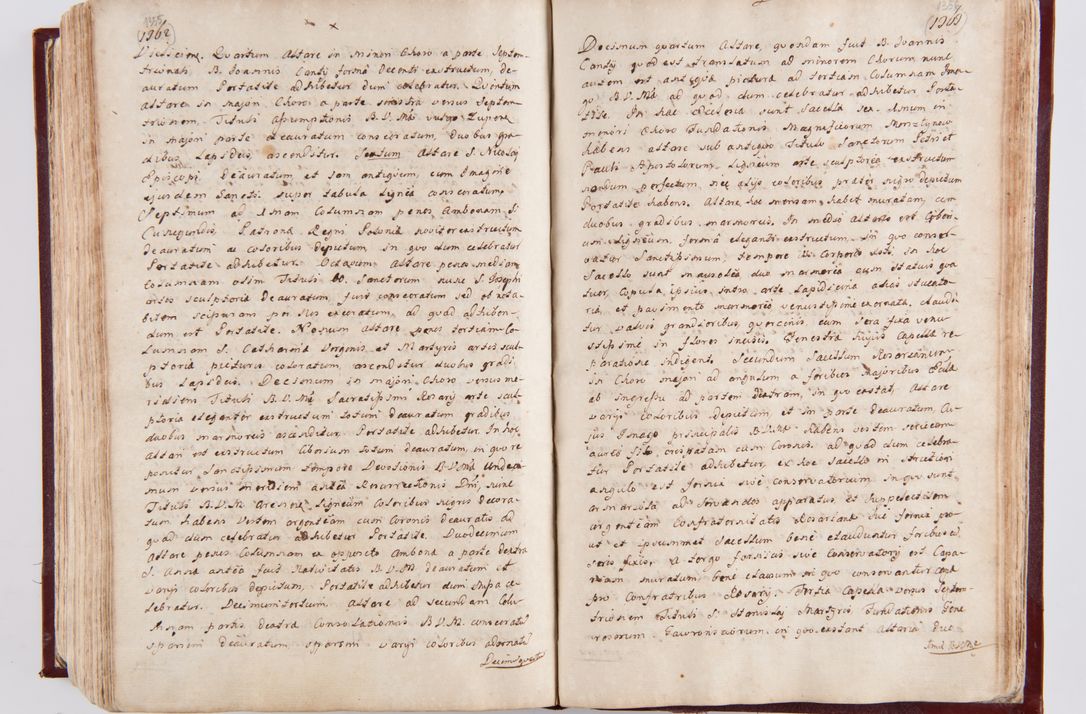 1355
1362
Quartum Altare in minori Choro a parte Septem-
trionali B. Joannis Canty forma Decenti exstructum, de-
auratum Portatile adhibetur dum celebratur. Quintum
altare in majori Choro a parte sinistra versus Septem-
trionem Tituli Assumptionis B.V.Mae vulgo
in majori parte deauratum consecratum, duobus gra-
dibus Lapideis ascenditur. Sextum Altare S. Nicolaj
Episcopi Deauratum et iam antiquum, cum Imagine
ejusdem Sancti super tabula Lignea consecratum.
Septimum ad Imam Columnam penes Ambonam S.
Cunegundis Patrona Regni Polonia noviter exstructum
deauratum ac coloribus depictum, in quo dum celebratur
Portatile adhibetur. Octavum Altare penes mediam
columnam olim Tituli Sanctorum nunc S. Josephi
artes sculptoria Deauratum, fuit consecratum sed
per execratum, ad quod adhiben-
dum est Portatile. Nonum altare penes tertiam Co-
lumnam S. Catharina Virginis et Martyris artes scul-
ptoria pictura coloratum ascenditur duobus gradi-
bus Lapideis. Decimum in majori Choro versus me-
ridiem Tituli B.V.Mae Sacratissimi Rosarij arte scul-
ptoria eleganter exstructum totum deauratum gradibus
duobus marmoreis ascenditur. Portatile adhibetur. In hoc
Altari est exstructum Ciborium totum deauratum, in quo re-
ponitur Sanctissimum tempore Devotionis B.V.Mae Undeci-
mum versus meridiem antea Resurrectionis Dni, nunc
Tituli B.V.M. Ligneum Coloribus nigris decora-
tum habens Vestem argenteam cum Coronis deauratis ad
quod dum celebratur adhibetur Portatile. Duodecimum
altare penes Columnam ex opposito Ambona a parte dextra
S. Anna antea fuit Nativitatis B.V.M. deauratum et
varijs coloribus depictum, Portatile adhibetur dum Missa ce-
lebratur. Decimum tertium Altare ad secundam Colu-
mnam partis dextra Consolationis B.V.M. consecratum
deauratum, varijs coloribus adornatum
Decimum quartum
1356
1363
Decimum quartum Altare, quondam fuit B. Joannis
Canty quod est translatum ad minorem Chorum, nunc
autem est antiqua pictura ad tertiam Columnam Ima-
go B.V.Mae ad quod dum celebratur adhibetur Porta-
tile. In hac Ecclesia sunt Sacella sex. Unum in
minori Choro Fundationis Magnificorum
habens altare sub antiquo Titulo Sanctorum Petri et
Pauli Apostolorum, Ligneum arte sculptoria exstructum
nondum perfectum, nec alijs coloribus prater nigro depictum
Portatile habens. Altare hoc mensam habet muratam, cum
duobus gradibus marmoreis. In medio Altaris est Cibori-
um Ligneum, forma eleganti exstructum, in quo conser-
vatur Sanctissimum, tempore Corporis Xsti, in hoc
Sacello sunt mausolea duo marmorea cum statuis qua-
tuor, Cupula ipsius intro arte Lapidicina adias stucato-
ria, et pavimento marmoreo venustissime exornata, claudi-
tur valvis grandioribus quercinis, cum sera fixa venu-
stissime in flores incisis. Fenestra hujus Capella re-
paratione indigent. Secundum Sacellum Rosarianum
in Choro majori ad angulum a foribus majoribus Eccla
ab ingressu ad partem dextram, in quo extat Altare
varijs coloribus depictum, et in parte deauratum, Cu-
jus Imago principalis B.V.Mae habens vestem sericeam
aureo filo crispatam cum Coronis, ad quod dum celebra-
tur Portatile adhibetur, ex hoc Sacello in structiori
angulo est fornix sive conservatorium in quo sunt
armariola ad servandos apparatus et suppellectilem
argenteam Confraternitatis Rosariana hic fornix pro-
ut et ipsummet Sacellum bene clauduntur foribus et
seris fixis, a tergo fornicis sive Conservatorij est Capa-
muratum, bene clausum in quo conservantur
pro Confratribus Rosarij. Tertia Capella versus Septem-
trionem Tituli S. Stanislaj Martyris Fundationis Gene-
rosorum in quo extant Altaria duo